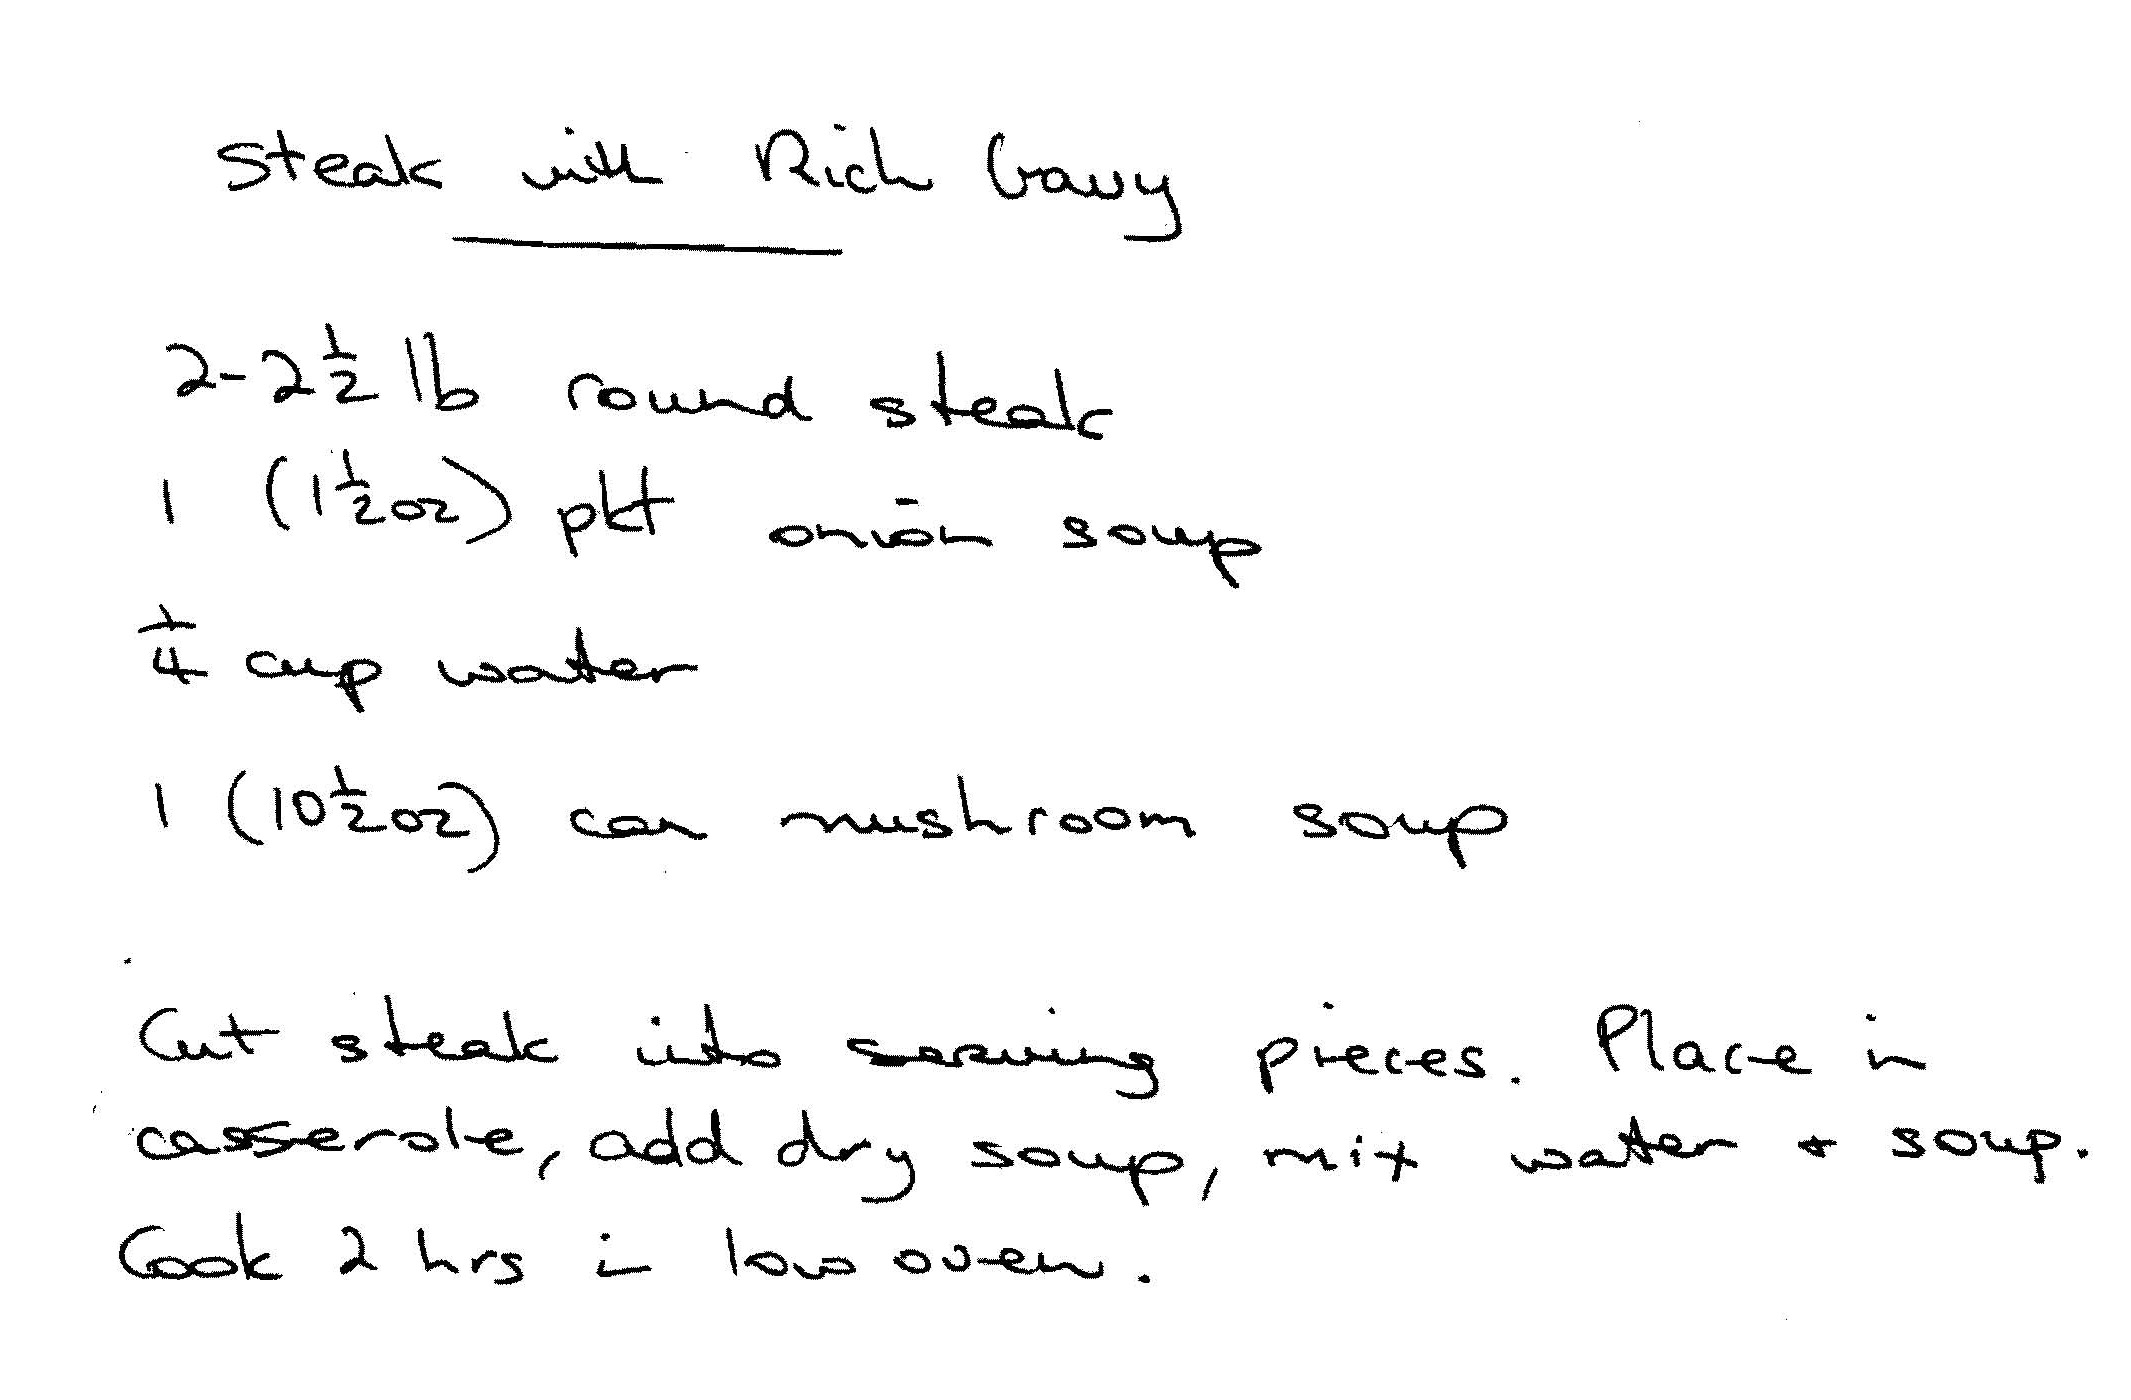 Steak with Rich Gravy
2-2½ lb round steak
1 (1½oz) pkt onion soup
¼ cup water
1 (10½oz) can mushroom soup
Cut steak into serving pieces. Place in
casserole, add dry soup, mix water + soup.
Cook 2 hrs in low oven.